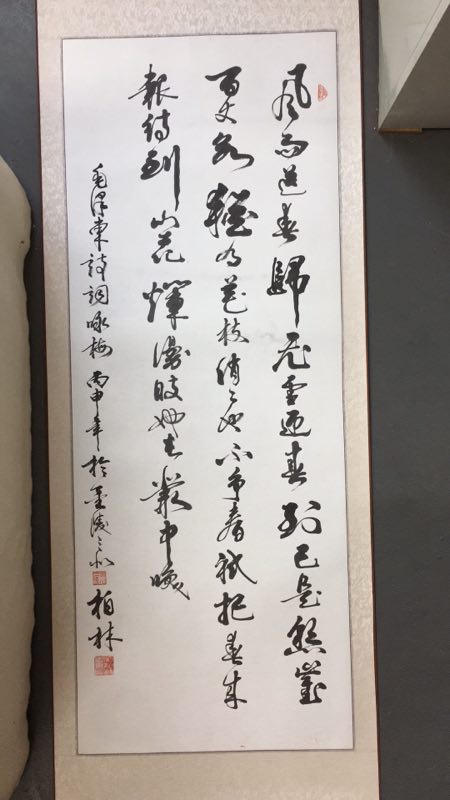 风雨送春歸飛雪迎春到已是懸崖
百丈冰猶有花枝俏〻也不争春祇把春来
報待到山花爛漫時她在叢中笑
毛澤東詩詞咏梅 丙申年於金陵 柏林